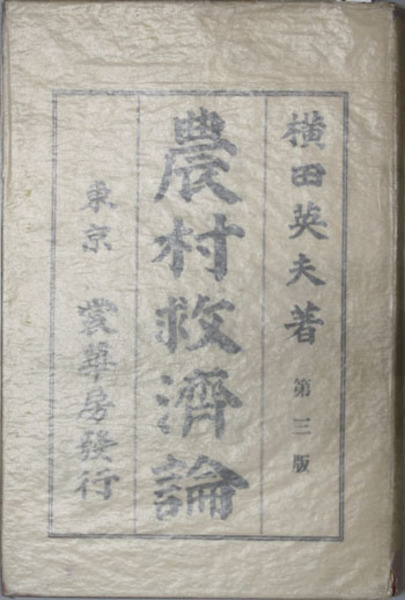 横田英夫著 第三版
農村救濟論
東京 裳華房發行